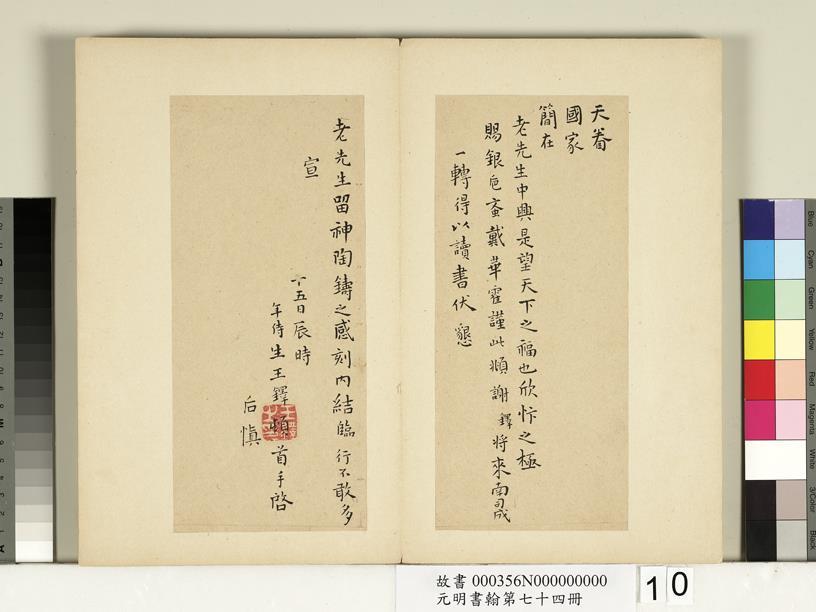 天眷
國家
簡在
老先生中興是望天下之福也欣忭之極
賜銀卮蚉戴華寵謹此順謝鐸將來南司成
一轉得以讀書伏懇
老先生留神陶鑄之感刻內結臨行不敢多
宣
十五日辰時
年侍生王鐸頓首手啓
后慎
故書 000356N000000000
元明書翰第七十四冊
10
Blue
Cyan
Green
Yellow
Red
Magenta
White
3/Color
Black